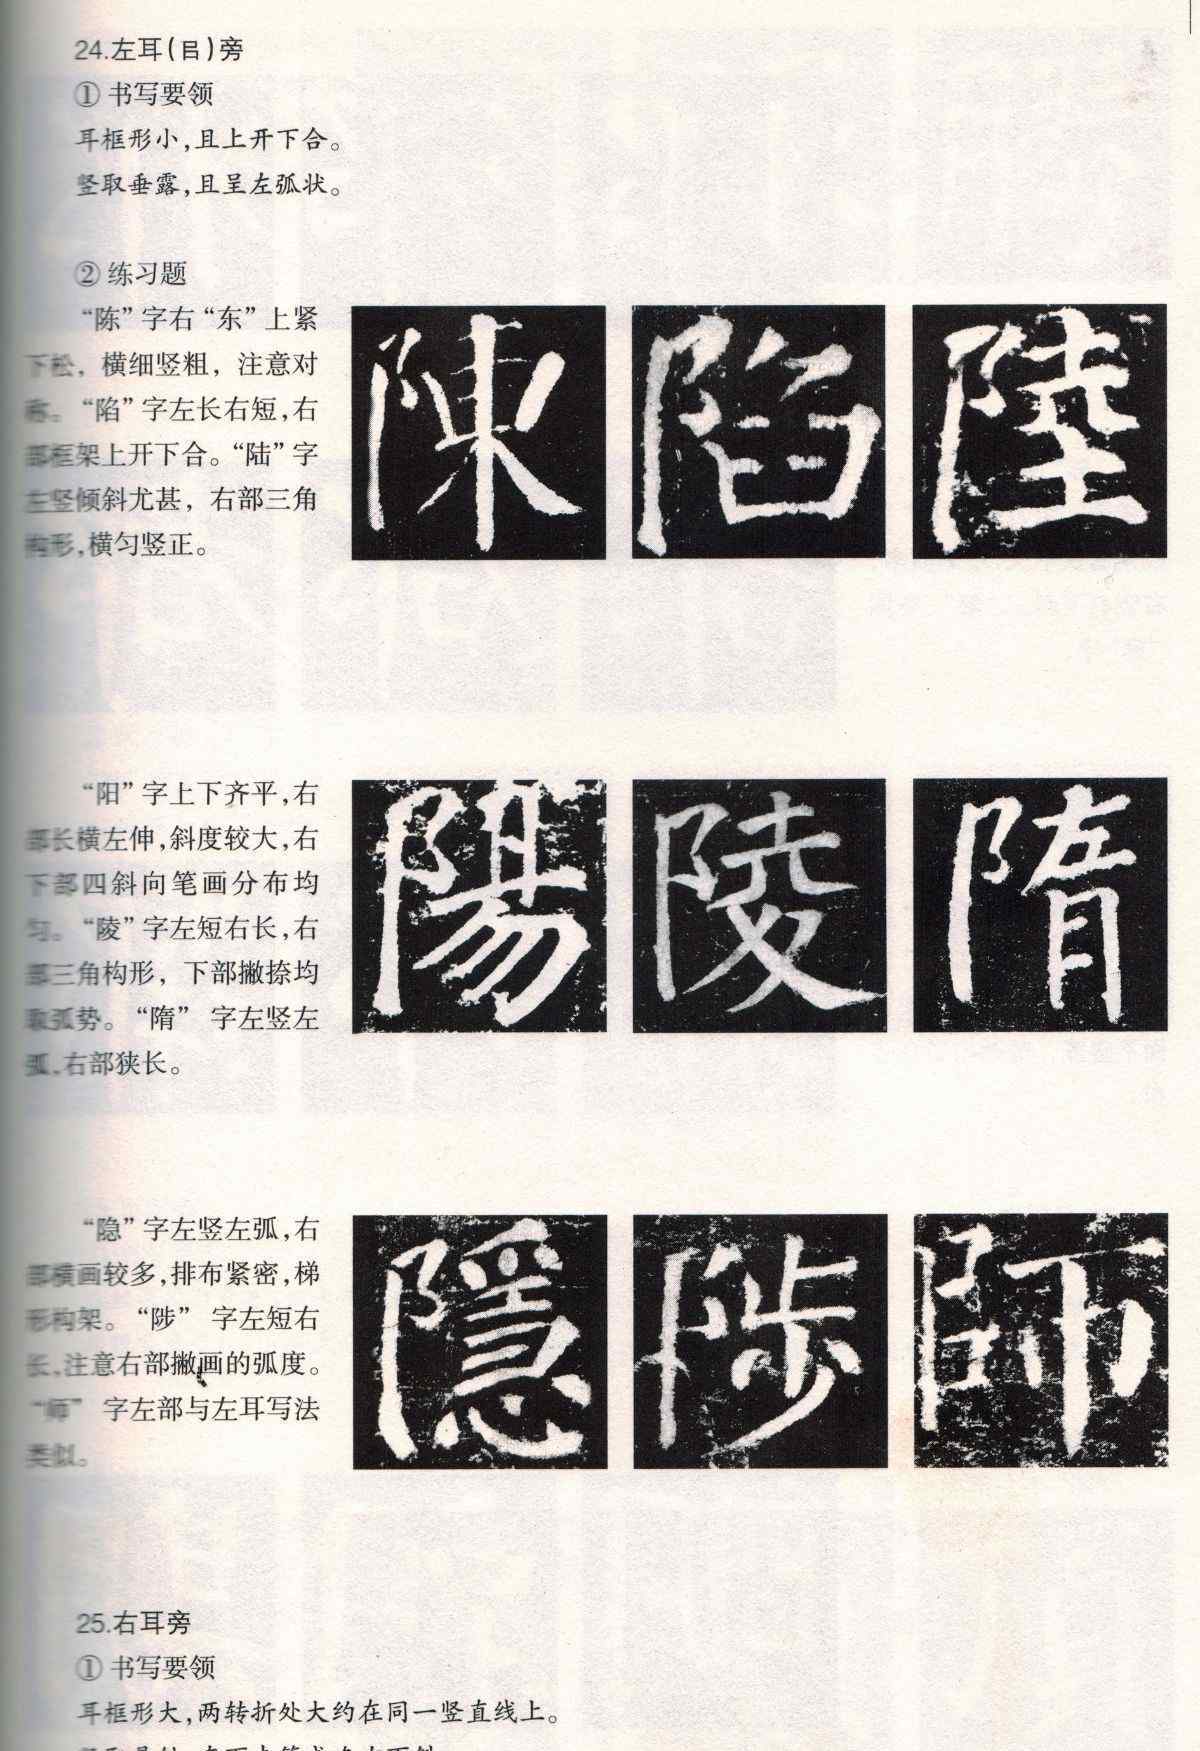 24.左耳(㠯)旁
① 书写要领
耳框形小,且上开下合。
竖取垂露,且呈左弧状。
② 练习题
“陈”字右“东”上紧
下松,横细竖粗,注意对
称。“陷”字左长右短,右
部框架上开下合。“陆”字
左竖倾斜尤甚,右部三角
构形,横匀竖正。
陳 陷 陸
“阳”字上下齐平,右
部长横左伸,斜度较大,右
下部四斜向笔画分布均
匀。“陵”字左短右长,右
部三角构形,下部撇捺均
取弧势。“隋”字左竖左
弧,右部狭长。
陽 陵 隋
“隐”字左竖左弧,右
部横画较多,排布紧密,梯
形构架。“陟”字左短右
长,注意右部撇画的弧度。
“师”字左部与左耳写法
类似。
隱 陟 師
25.右耳旁
① 书写要领
耳框形大,两转折处大约在同一竖直线上。